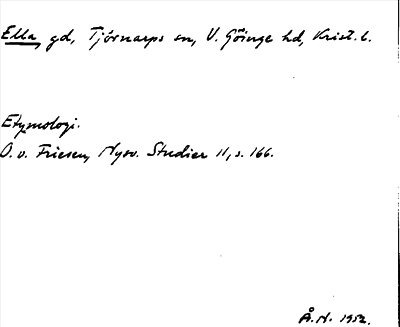 Ella, gd, Tjörnarps sn, V. Göinge hd, Krist. l.
Etymologi.
O. v. Friesen, Nysv. Studier 11, s. 166.
Å. H. 1952.